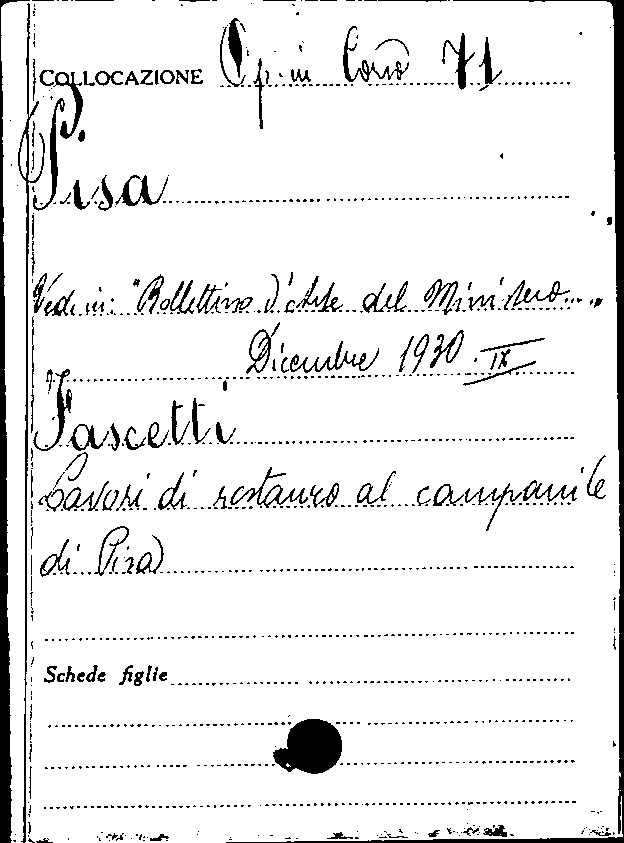 COLLOCAZIONE Op. in Corso 71
Pisa
Vedi in: "Bollettino d'Arte del Ministero...."
Dicembre 1930. IX
Fascetti
Lavori di restauro al campanile
di Pisa
Schede figlie